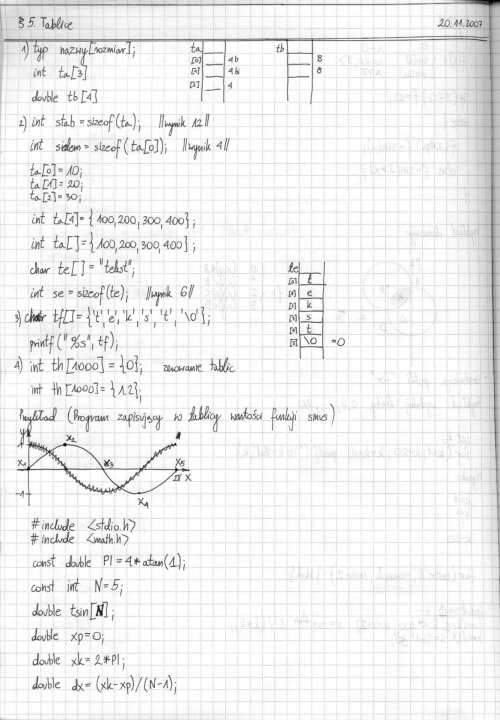 § 5. Tablice 20.11.2007
1) typ nazwy[rozmiar];
int ta[3]
double tb[4]
ta tb
[0] 4b 8
[1] 4b 8
[2] 4
2) int stab = sizeof(ta); //wynik 12//
int sielem = sizeof(ta[0]); //wynik 4//
ta[0]=10;
ta[1]=20;
ta[2]=30;
int ta[4]={100,200,300,400};
int ta[]={100,200,300,400};
char te[]="tekst";
int se = sizeof(te); //wynik 6//
te
t
e
k
s
t
\0 =0
3) char tf[]={'t','e','k','s','t','\0'};
printf("%s", tf);
4) int th[1000] = {0}; zerowanie tablic
int th[1000] = {1.2};
Przykład (Program zapisujący w tablicy wartości funkcji sinus)
y
1
x1 x2 x3 x4 x5
x
-1
#include <stdio.h>
#include <math.h>
const double PI = 4*atan(1);
const int N=5;
double tsin[N];
double xp=0;
double xk=2*PI;
double dx=(xk-xp)/(N-1);